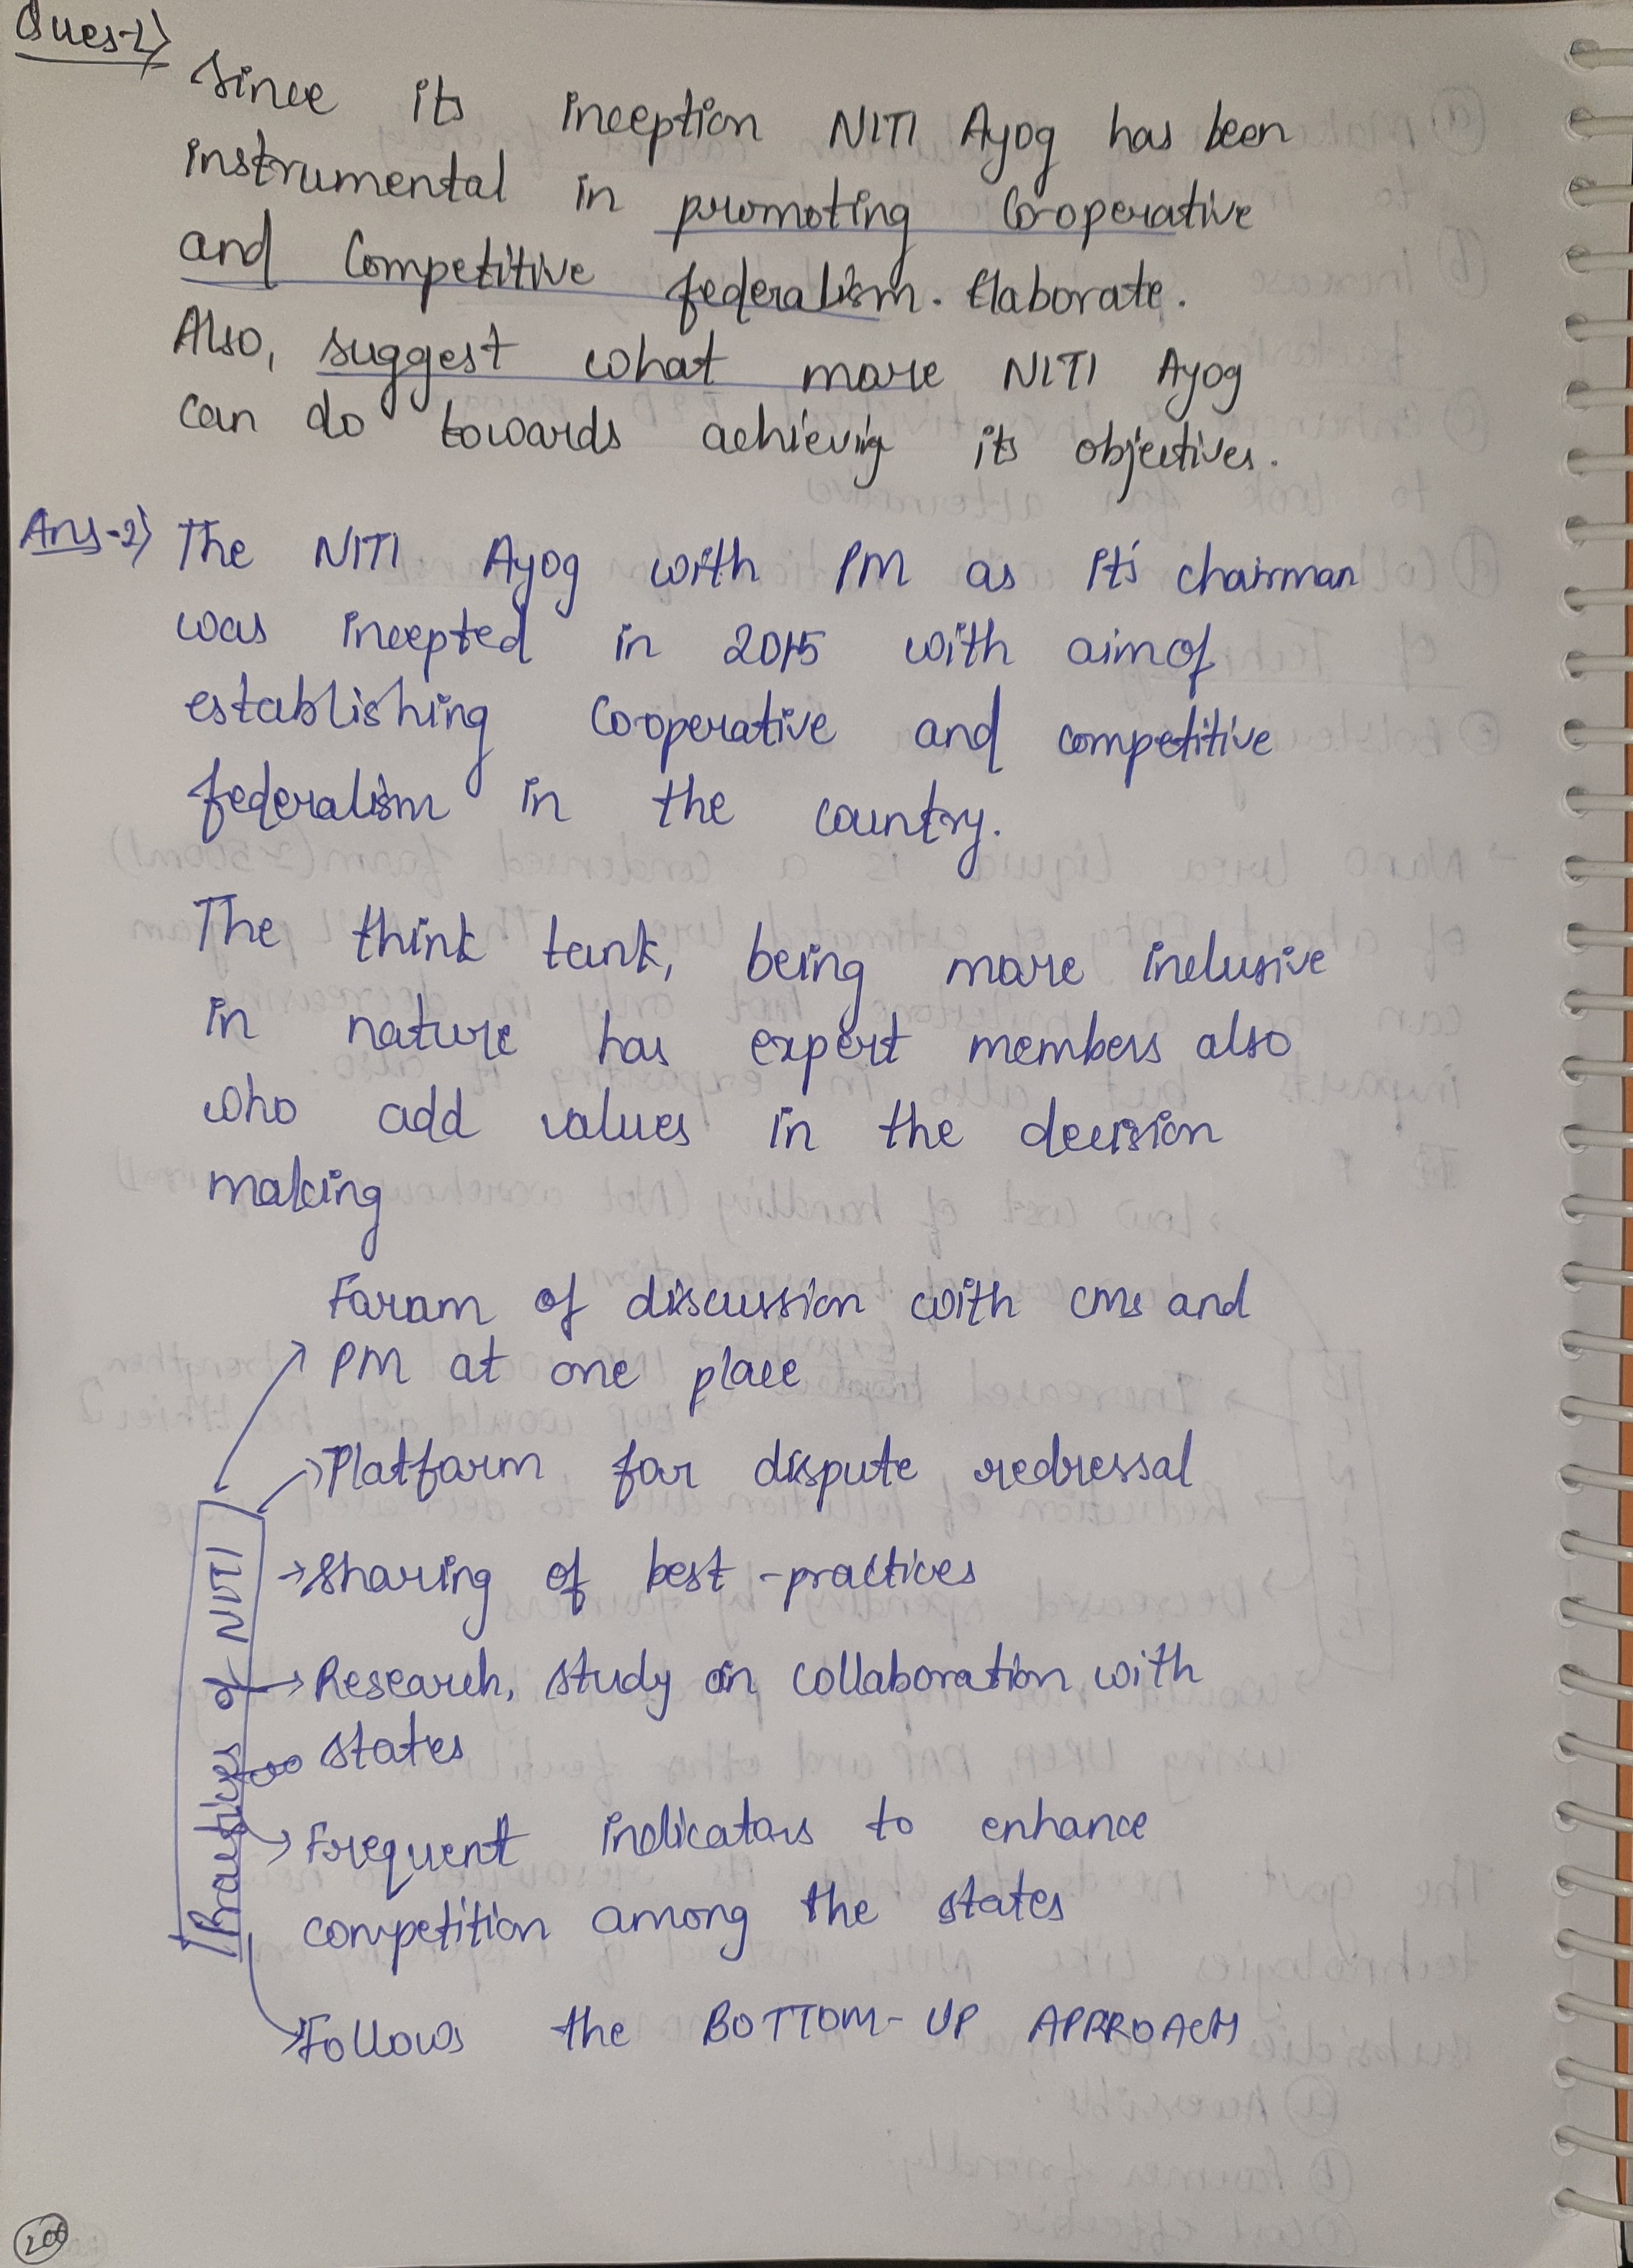 Ques-2)
Since its inception NITI Ayog has been
instrumental in promoting Co-operative
and Competitive federalism. Elaborate.
Also, suggest what more NITI Ayog
can do towards achieving its objectives.
Ans-2) The NITI Ayog with PM as it's chairman
was incepted in 2015 with aim of
establishing Co-operative and competitive
federalism in the country.
The think tank, being more inclusive
in nature has expert members also
who add values in the decision
making
Foram of discussion with CMs and
PM at one place
Platform for dispute redressal
Sharing of best-practices
Research, study in collaboration with
states
Frequent indicators to enhance
competition among the states
Follows the BOTTOM-UP APPROACH
Practices of NITI
206